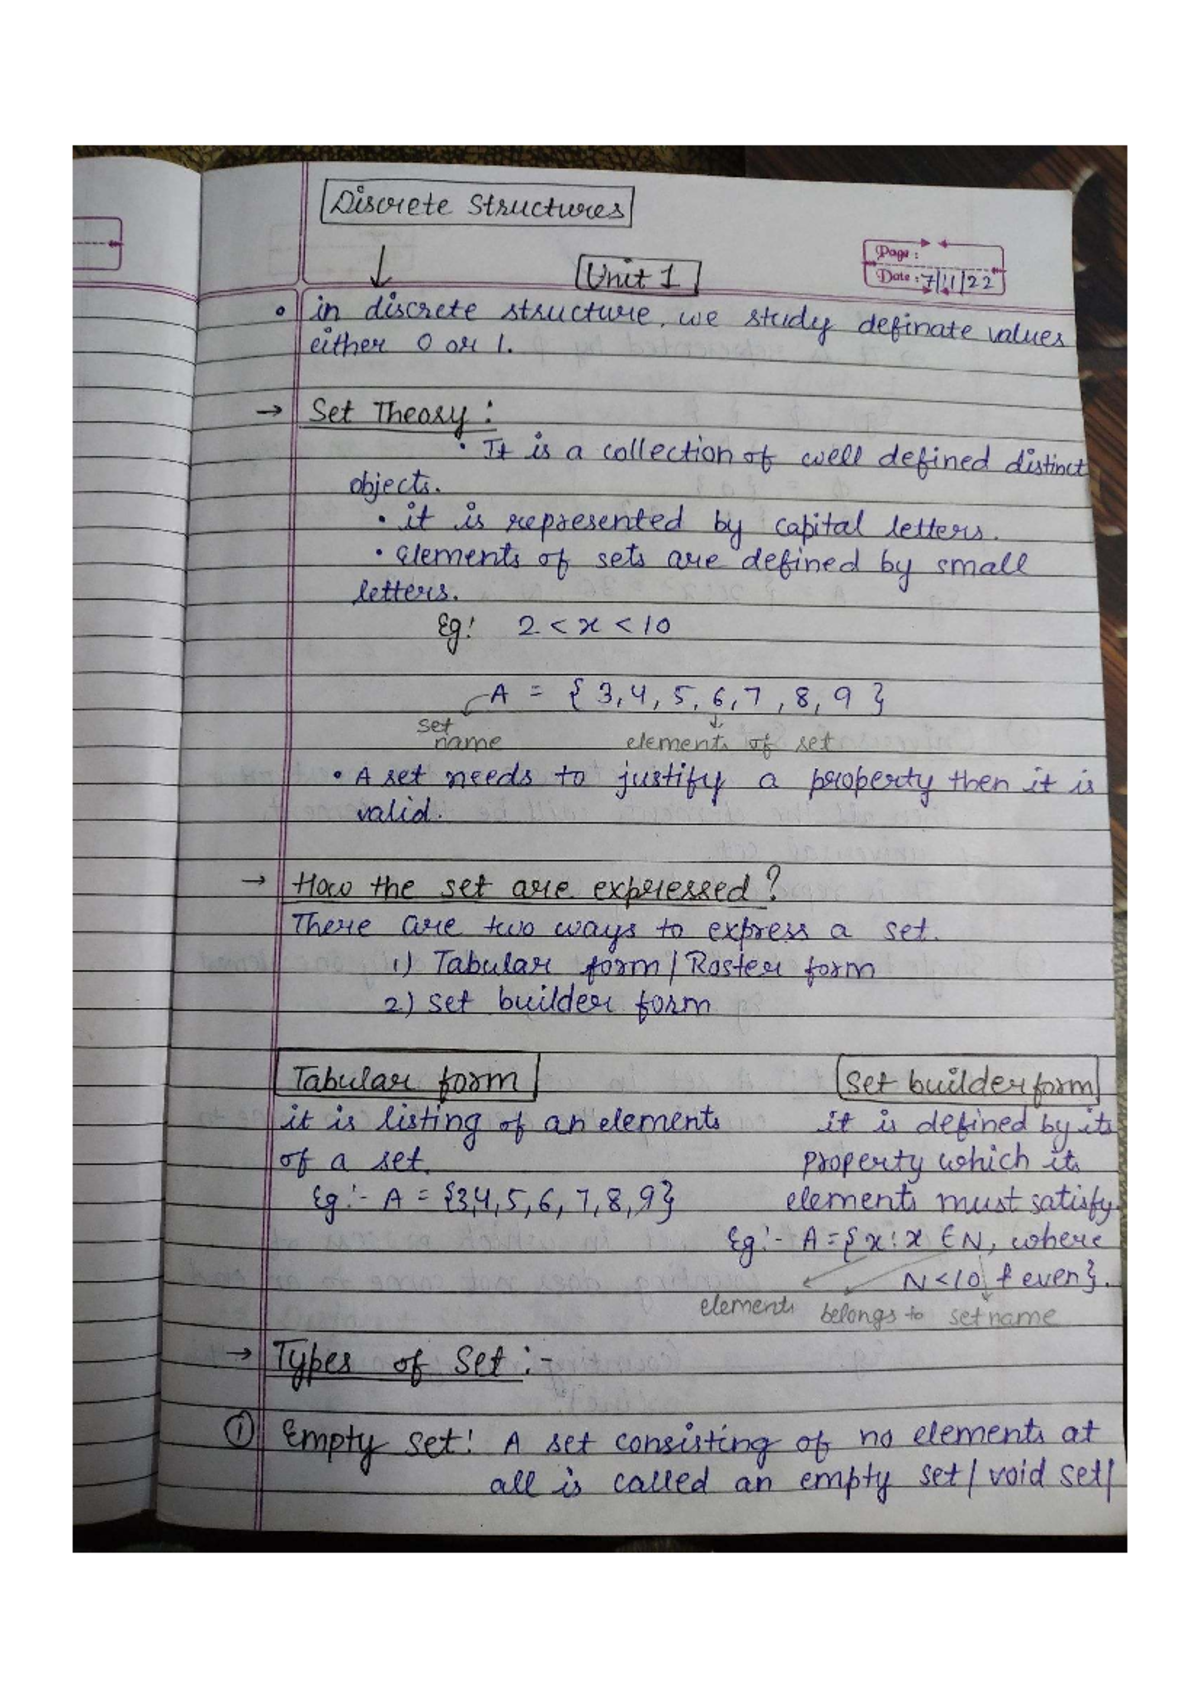 Discrete Structures
Unit 1
Page :
Date : 7/11/22
in discrete structure, we study definate values
either 0 or 1.
→ Set Theory :
• It is a collection of well defined distinct
objects.
• it is represented by capital letters.
• elements of sets are defined by small
letters.
Eg: 2 < x < 10
A = { 3, 4, 5, 6, 7, 8, 9 }
set name
elements of set
• A set needs to justify a property then it is
valid.
→ How the set are expressed?
There are two ways to express a set.
1) Tabular form / Roster form
2) set builder form
Tabular form
it is listing of an elements
of a set.
Eg:- A = {3,4,5,6,7,8,9}
Set builder form
it is defined by its
property which its
elements must satisfy.
Eg:- A={x:x ∈N, where
N<10 & even}.
elements belongs to set name
→ Types of Set :-
① Empty set: A set consisting of no elements at
all is called an empty set/ void set/